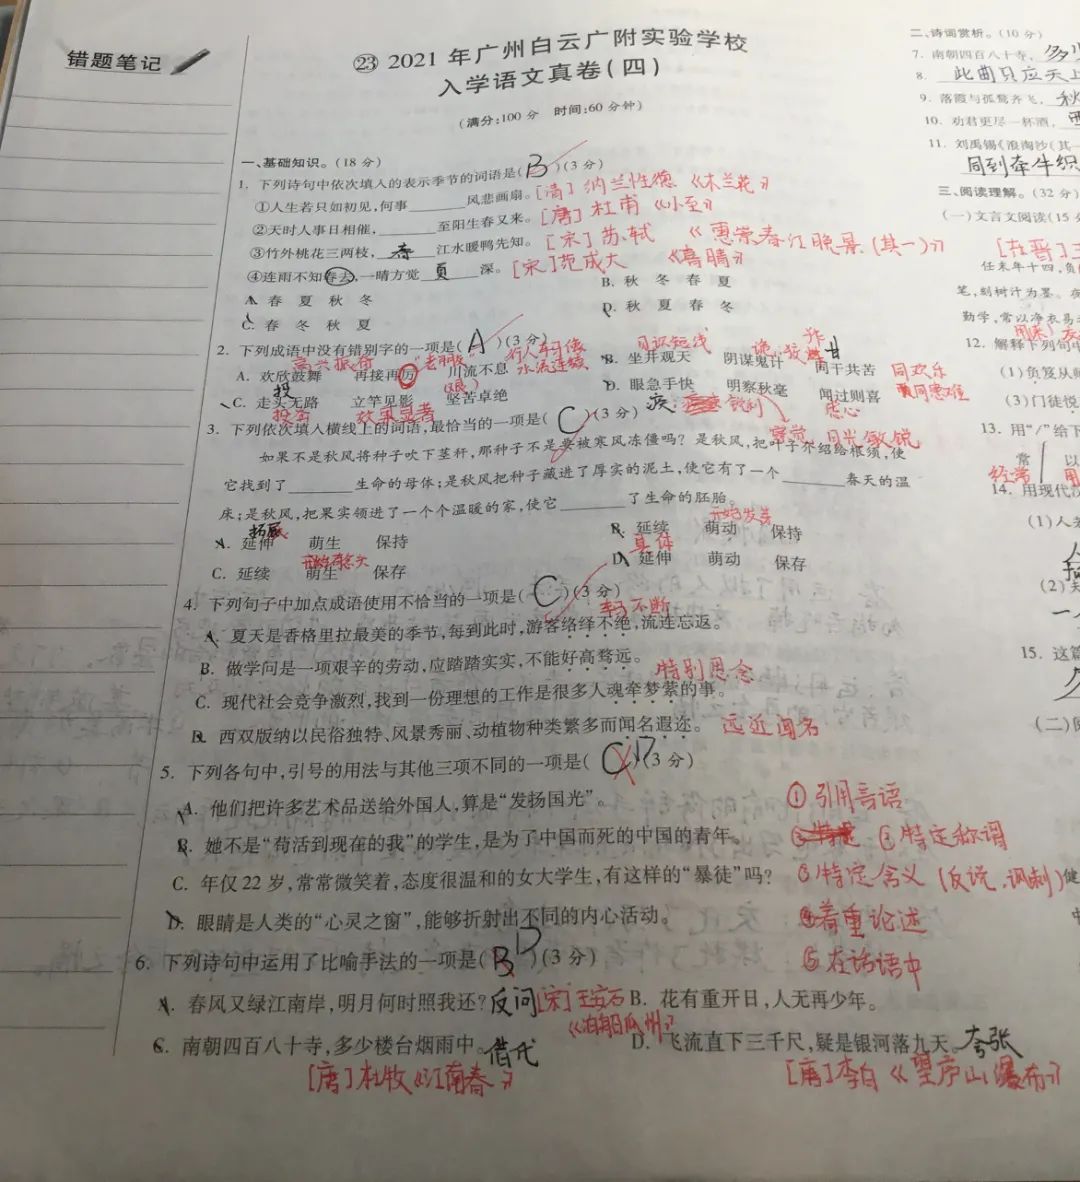 错题笔记
㉓ 2021 年广州白云广附实验学校
入学语文真卷(四)
(满分:100 分 时间:60 分钟)
一、基础知识。(18 分)
1. 下列诗句中依次填入的表示季节的词语是( B )(3 分)
①人生若只如初见,何事______风悲画扇。[清]纳兰性德《木兰花》
②天时人事日相催,______至阳生春又来。[唐]杜甫《小至》
③竹外桃花三两枝, 春 江水暖鸭先知。[宋]苏轼《惠崇春江晚景(其一)》
④连雨不知春去,一晴方觉 夏 深。[宋]范成大《喜晴》
A. 春 夏 秋 冬
B. 秋 冬 春 夏
C. 春 冬 秋 夏
D. 秋 夏 春 冬
2. 下列成语中没有错别字的一项是( A )(3 分)
高兴振奋
水流连续
见识短浅
诡
诈
甘
A. 欢欣鼓舞 再接再厉 川流不息
B. 坐井观天 阴谋鬼计 同干共苦 同欢乐
同患难
投
C. 走头无路 立竿见影 坚苦卓绝
(艰)
D. 眼急手快 明察秋毫 闻过则喜
效果显著
疾
虚心
目光敏锐
3. 下列依次填入横线上的词语,最恰当的一项是( C )(3 分)
如果不是秋风将种子吹下茎秆,那种子不是要被寒风冻僵吗?是秋风,把叶子介绍给根须,使
它找到了______生命的母体;是秋风把种子藏进了厚实的泥土,使它有了一个______春天的温
床;是秋风,把果实领进了一个个温暖的家,使它______了生命的胚胎。
拓展
开始发芽
A. 延伸 萌生 保持
B. 延续 萌动 保持
具体
C. 延续 萌生 保存
D. 延伸 萌动 保存
4. 下列句子中加点成语使用不恰当的一项是( C )(3 分)
不断
A. 夏天是香格里拉最美的季节,每到此时,游客络绎不绝,流连忘返。
B. 做学问是一项艰辛的劳动,应踏踏实实,不能好高骛远。
特别思念
C. 现代社会竞争激烈,找到一份理想的工作是很多人魂牵梦萦的事。
D. 西双版纳以民俗独特、风景秀丽、动植物种类繁多而闻名遐迩。 远近闻名
5. 下列各句中,引号的用法与其他三项不同的一项是( C D )(3 分)
A. 他们把许多艺术品送给外国人,算是“发扬国光”。
①引用言语
B. 她不是“苟活到现在的我”的学生,是为了中国而死的中国的青年。
②特定称谓
C. 年仅 22 岁,常常微笑着,态度很温和的女大学生,有这样的“暴徒”吗?
③特定含义(反说、讽刺)
D. 眼睛是人类的“心灵之窗”,能够折射出不同的内心活动。
④着重论述
⑤在话语中
6. 下列诗句中运用了比喻手法的一项是( B D )(3 分)
A. 春风又绿江南岸,明月何时照我还?反问[宋]王安石
《泊船瓜州》
B. 花有重开日,人无再少年。
C. 南朝四百八十寺,多少楼台烟雨中。借代
[唐]杜牧《江南春》
D. 飞流直下三千尺,疑是银河落九天。夸张
[唐]李白《望庐山瀑布》
二、诗词赏析。(10 分)
7. 南朝四百八十寺,多少
8. 此曲只应天上
9. 落霞与孤鹜齐飞,秋
10. 劝君更尽一杯酒,西
11. 刘禹锡《浪淘沙(其一
同到牵牛织
三、阅读理解。(32 分)
(一)文言文阅读(15 分
任末年十四,负
笔,刻树汁为墨。夜
勤学,常以净衣易
12. 解释下列句中
(1)负笈从师
(3)门徒悦
13. 用“/”给下
常 以
经常 用
14. 用现代汉
(1)人
(2)
15. 这篇
(二)